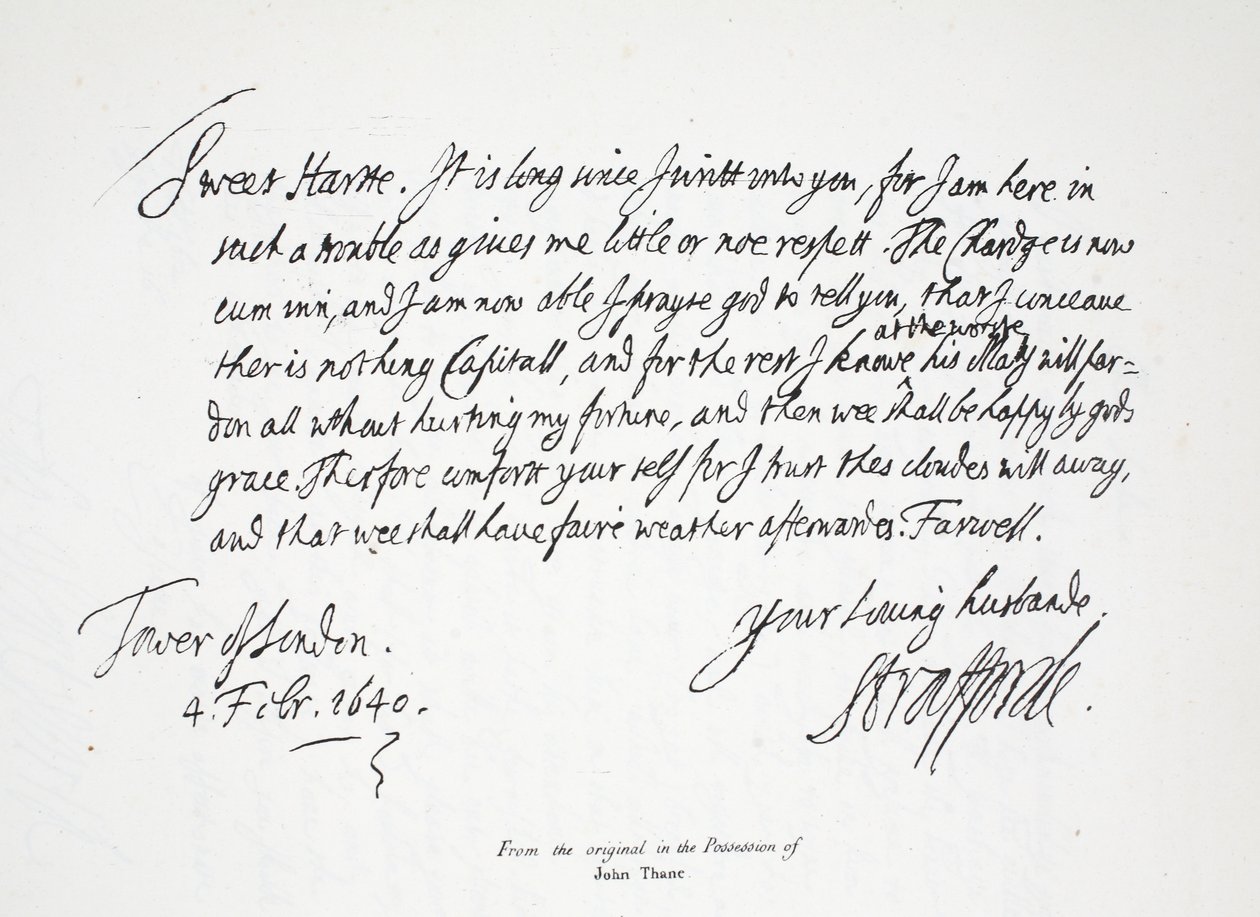 Sweet Harte. It is long since I writt unto you, for I am here in
such a trouble as gives me little or noe respett. The Chardge is now
cum inn, and I am now able I prayse god to tell you, that I conceave
ther is nothing Capitall, and for the rest I knowe at the worste his Maty will par=
don all wthout hurting my fortune, and then wee shall be happy by gods
grace. Therfore comfortt your self for I trust thes cloudes will away,
and that wee shall have faire weather afterwardes. Farwell.
Your loving husbande.
Tower of London.
Strafforde.
4. Febr. 1640.
From the original in the Possession of
John Thane.